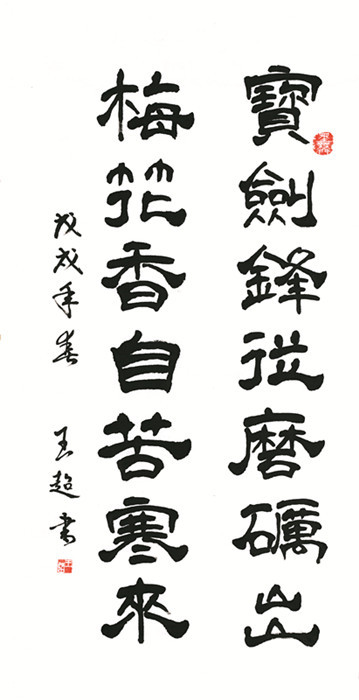 寶劍鋒從磨礪出
梅花香自苦寒來
戊戌年春 王超書